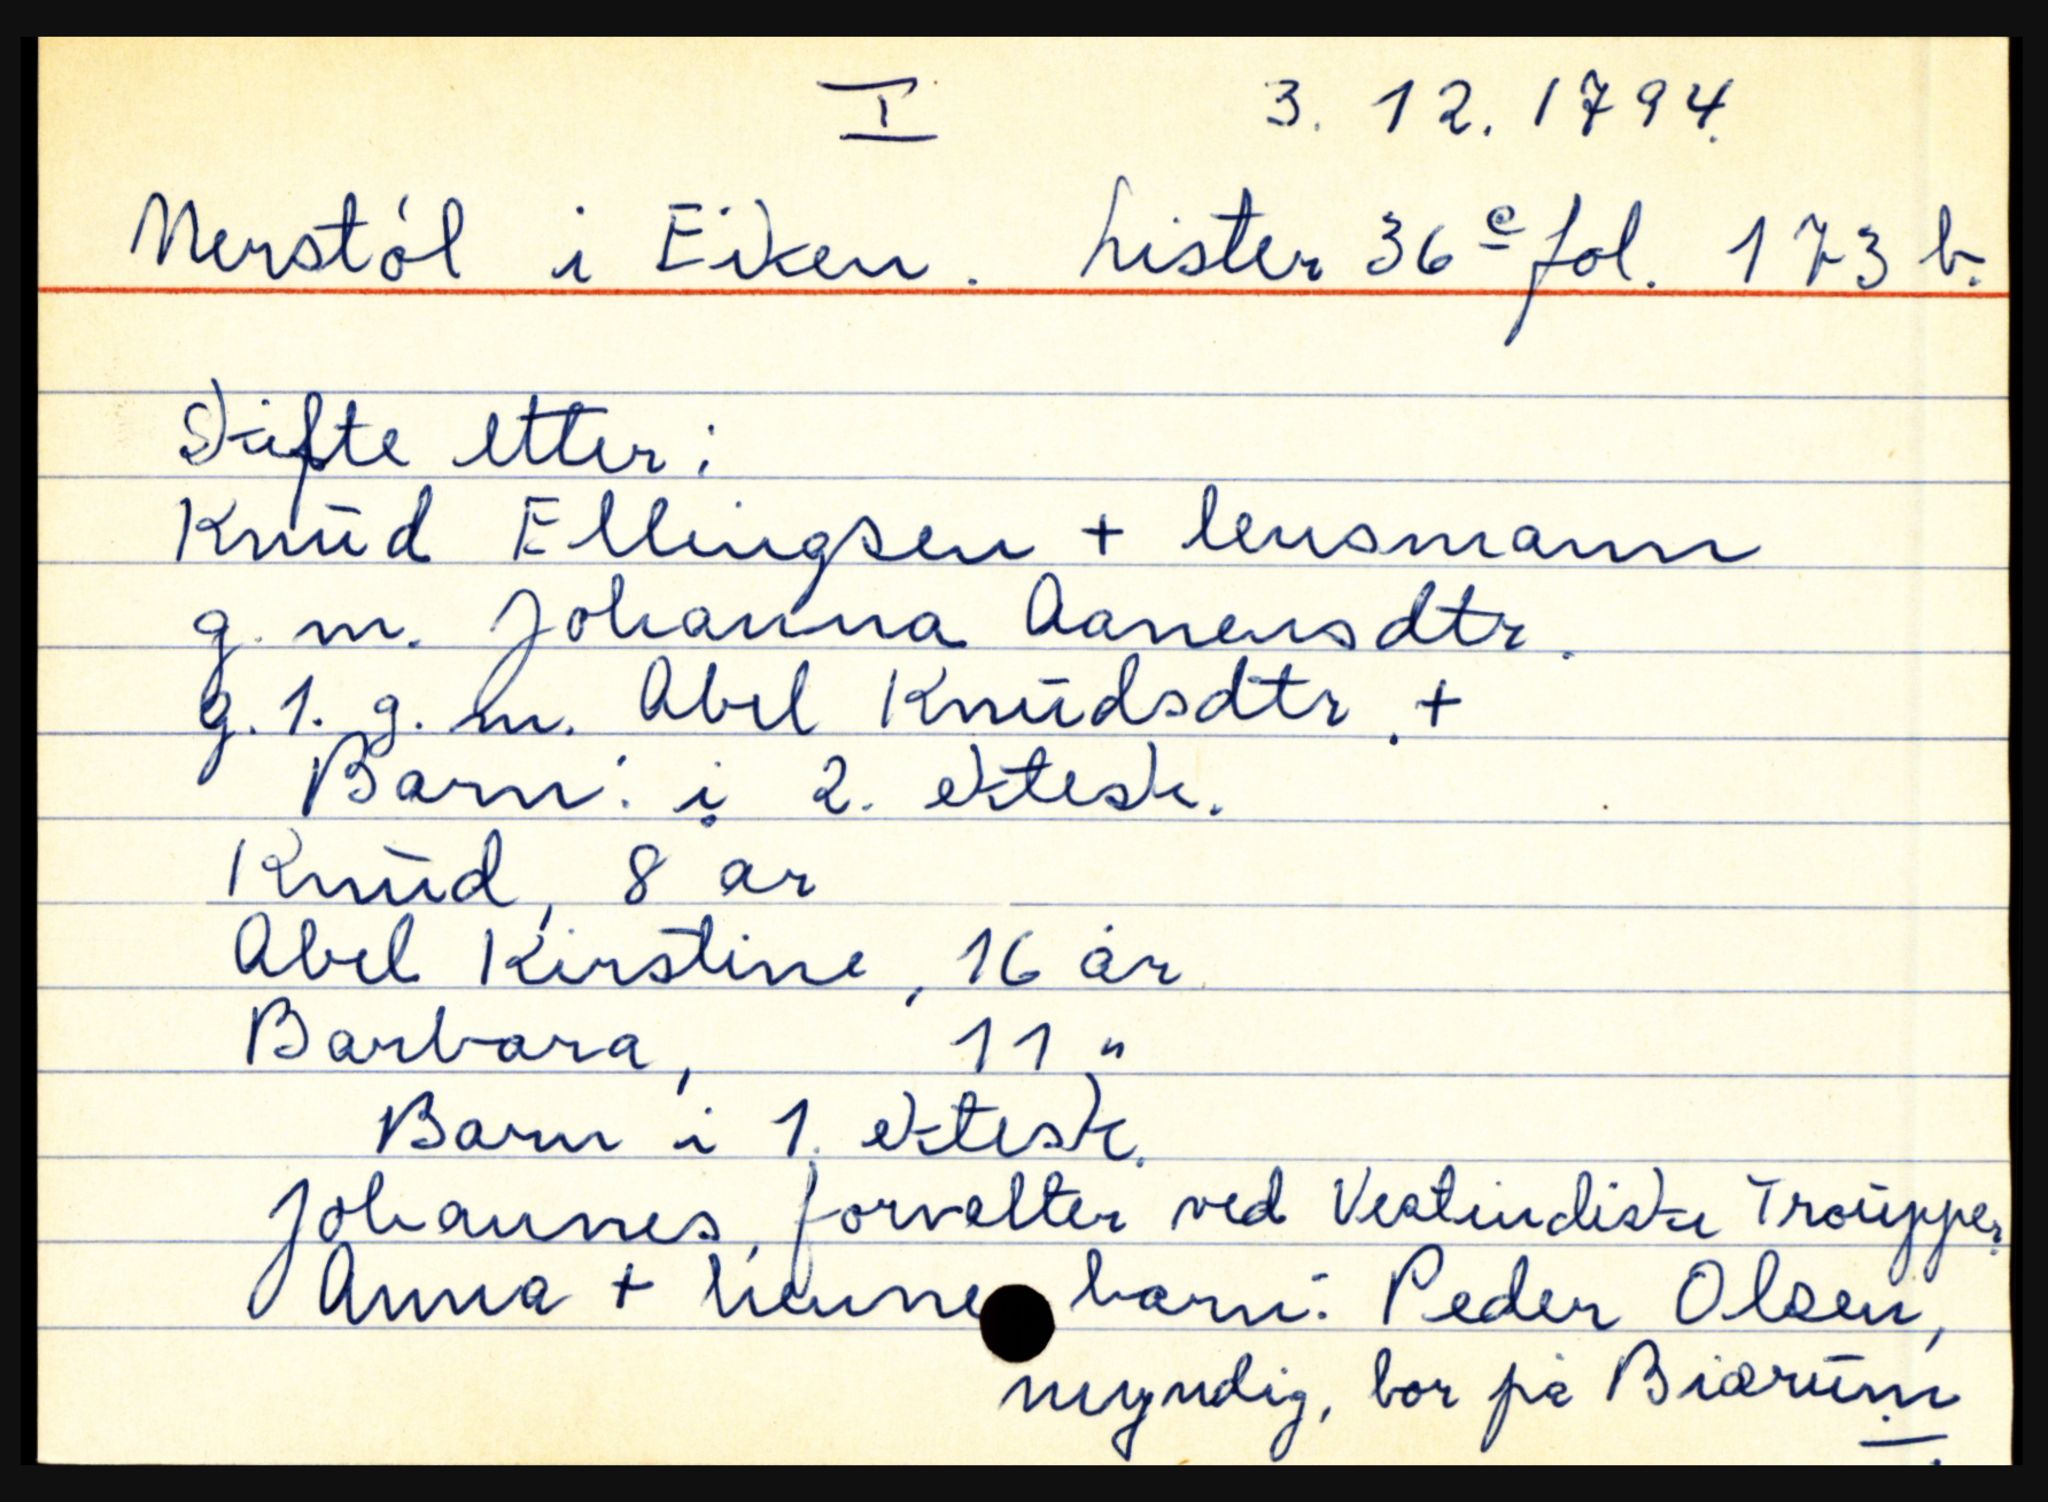 I 3. 12. 1794.
Nerstól i Eiken. Lister 36 e fol. 173 b.
Skifte etter:
Knud Ellingsen + lensmann
g. m. Johanna Aanensdtr.
g. 1. g. m. Abel Knudsdtr. +
Barn: i 2. ektesk.
Knud, 8 år
Abel Kirstine, 16 år
Barbara, 11 "
Barn i 1. ektesk.
Johannes, forvalter ved Vestindiske Troupper.
Anna + hennes barn: Peder Olsen,
myndig, bor på Biærum